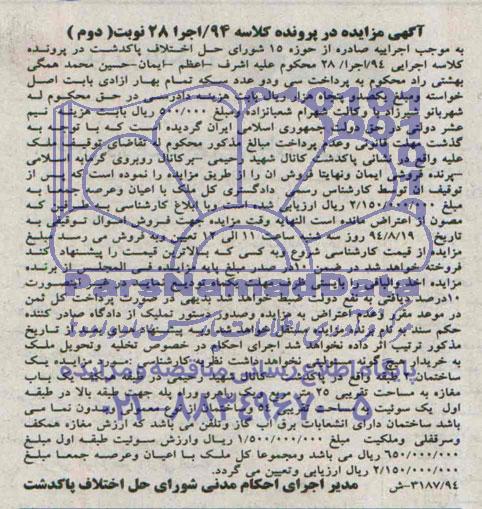 آگهی مزایده در پرونده کلاسه ۹۴/اجرا ۲۸ نوبت( دوم )
به موجب اجراییه صادره از حوزه ۱۵ شورای حل اختلاف پاکدشت در پرونده
کلاسه اجرایی ۹۴/اجرا/ ۲۸ محکوم علیه اشرف -اعظم -ایمان-حسین محمد همگی
بهشتی راد محکوم به پرداخت سی ودو عدد سکه تمام بهار ازادی بابت اصل
خواسته ومبلغ و پنجاه هزار ریال بابت هزینه دادرسی در حق محکوم له
شهربانو شیرزاد با وکالت شهرام شعبانزاده ومبلغ ۵۰۰/۰۰۰ ریال بابت هزینه نیم
عشر دولتی در حق دولت جمهوری اسلامی ایران گردیده است که با توجه به
گذشت مهلت قانونی وعدم پرداخت مبالغ مذکور محکوم له تقاضای توقیف ملک
علیه واقع در نشانی پاکدشت کانال شهید رحیمی -برکانال روبروی گرمابه اسلامی
-پرنده فروشی ایمان ونهایتا فروش ان را از طریق مزایده را نموده است که پس از
توقیف ان توسط کارشناس رسمی دادگستری کل ملک با اعیان وعرصه جمعا به
مبلغ ۲/۱۵۰/۰۰۰/۰۰۰ ریال ارزیابی شده است وبا ابلاغ کارشناسی به طرفین که
مصون از اعتراض مانده است النهایه وقت مزایده جهت فروش اموال توقیفی به
تاریخ ۹۴/۸/۱۹ روز سه شنبه ساعت ۱۱ الی ۱۲ تعیین وبه فروش می رسد مبلغ
مزایده از قیمت کارشناسی شروع وبه کسی که بالاترین قیمت را پیشنهاد کند
فروخته خواهد شد در ضمن ۱۰درصد مبلغ پایه مزایده فی المجلس از برنده
مزایده اخذ والباقی
۱۰درصد دریافتی به نفع دولت ضبط خواهد شد بدیهی است درصورت پرداخت کل ثمن
در موعد مقرر وعدم اعتراض به مزایده وصدور دستور تملیک از دادگاه صادر کننده
حکم سند به نام برنده مزایده انتقال خواهد شد
مذکور ترتیب اثر داده نخواهد شد اجرای احکام در خصوص تخلیه وتحویل ملک
به خریدار هیچ گونه مسئولیتی نخواهد داشت نظریه کارشناسی مورد مزایده یک
ساختمان دو طبقه واقع در پاکدشت کانال شهید رحیمی در طبقه همکف یک باب
مغازه به مساحت تقریبی ۲۵ متر مربع ویک راهرو وراه پله جهت طبقه بالا در طبقه
اول یک سوئیت به مساحت تقریبی ساختمان از نوع معمولی وبدون نماسی می
باشد ساختمان دارای انشعابات برق آب گاز وتلفن می باشد که ارزش مغازه همکف
وسرقفلی وملکیت مبلغ ۱/۵۰۰/۰۰۰/۰۰۰ ریال وارزش سوئیت طبقه اول مبلغ
۶۵۰/۰۰۰/۰۰۰ ریال می باشد ومجموعا کل ملک با اعیان وعرصه جمعا مبلغ
۲/۱۵۰/۰۰۰/۰۰۰ ریال ارزیابی وتعیین می گردد.
۳۱۸۷/۹۴-ش مدیر اجرای احکام مدنی شورای حل اختلاف پاکدشت
ParsNamadData
پایگاه اطلاع رسانی مناقصه و مزایده
۰۲۱-۸۸۳۴۹۶۷۰-۵